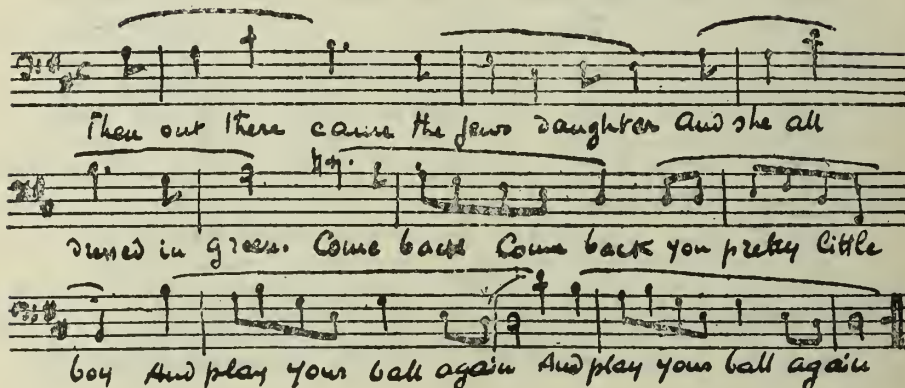 Then out there came the Jews daughter And she all
dressed in green. Come back Come back you pretty little
boy And play your ball again And play your ball again